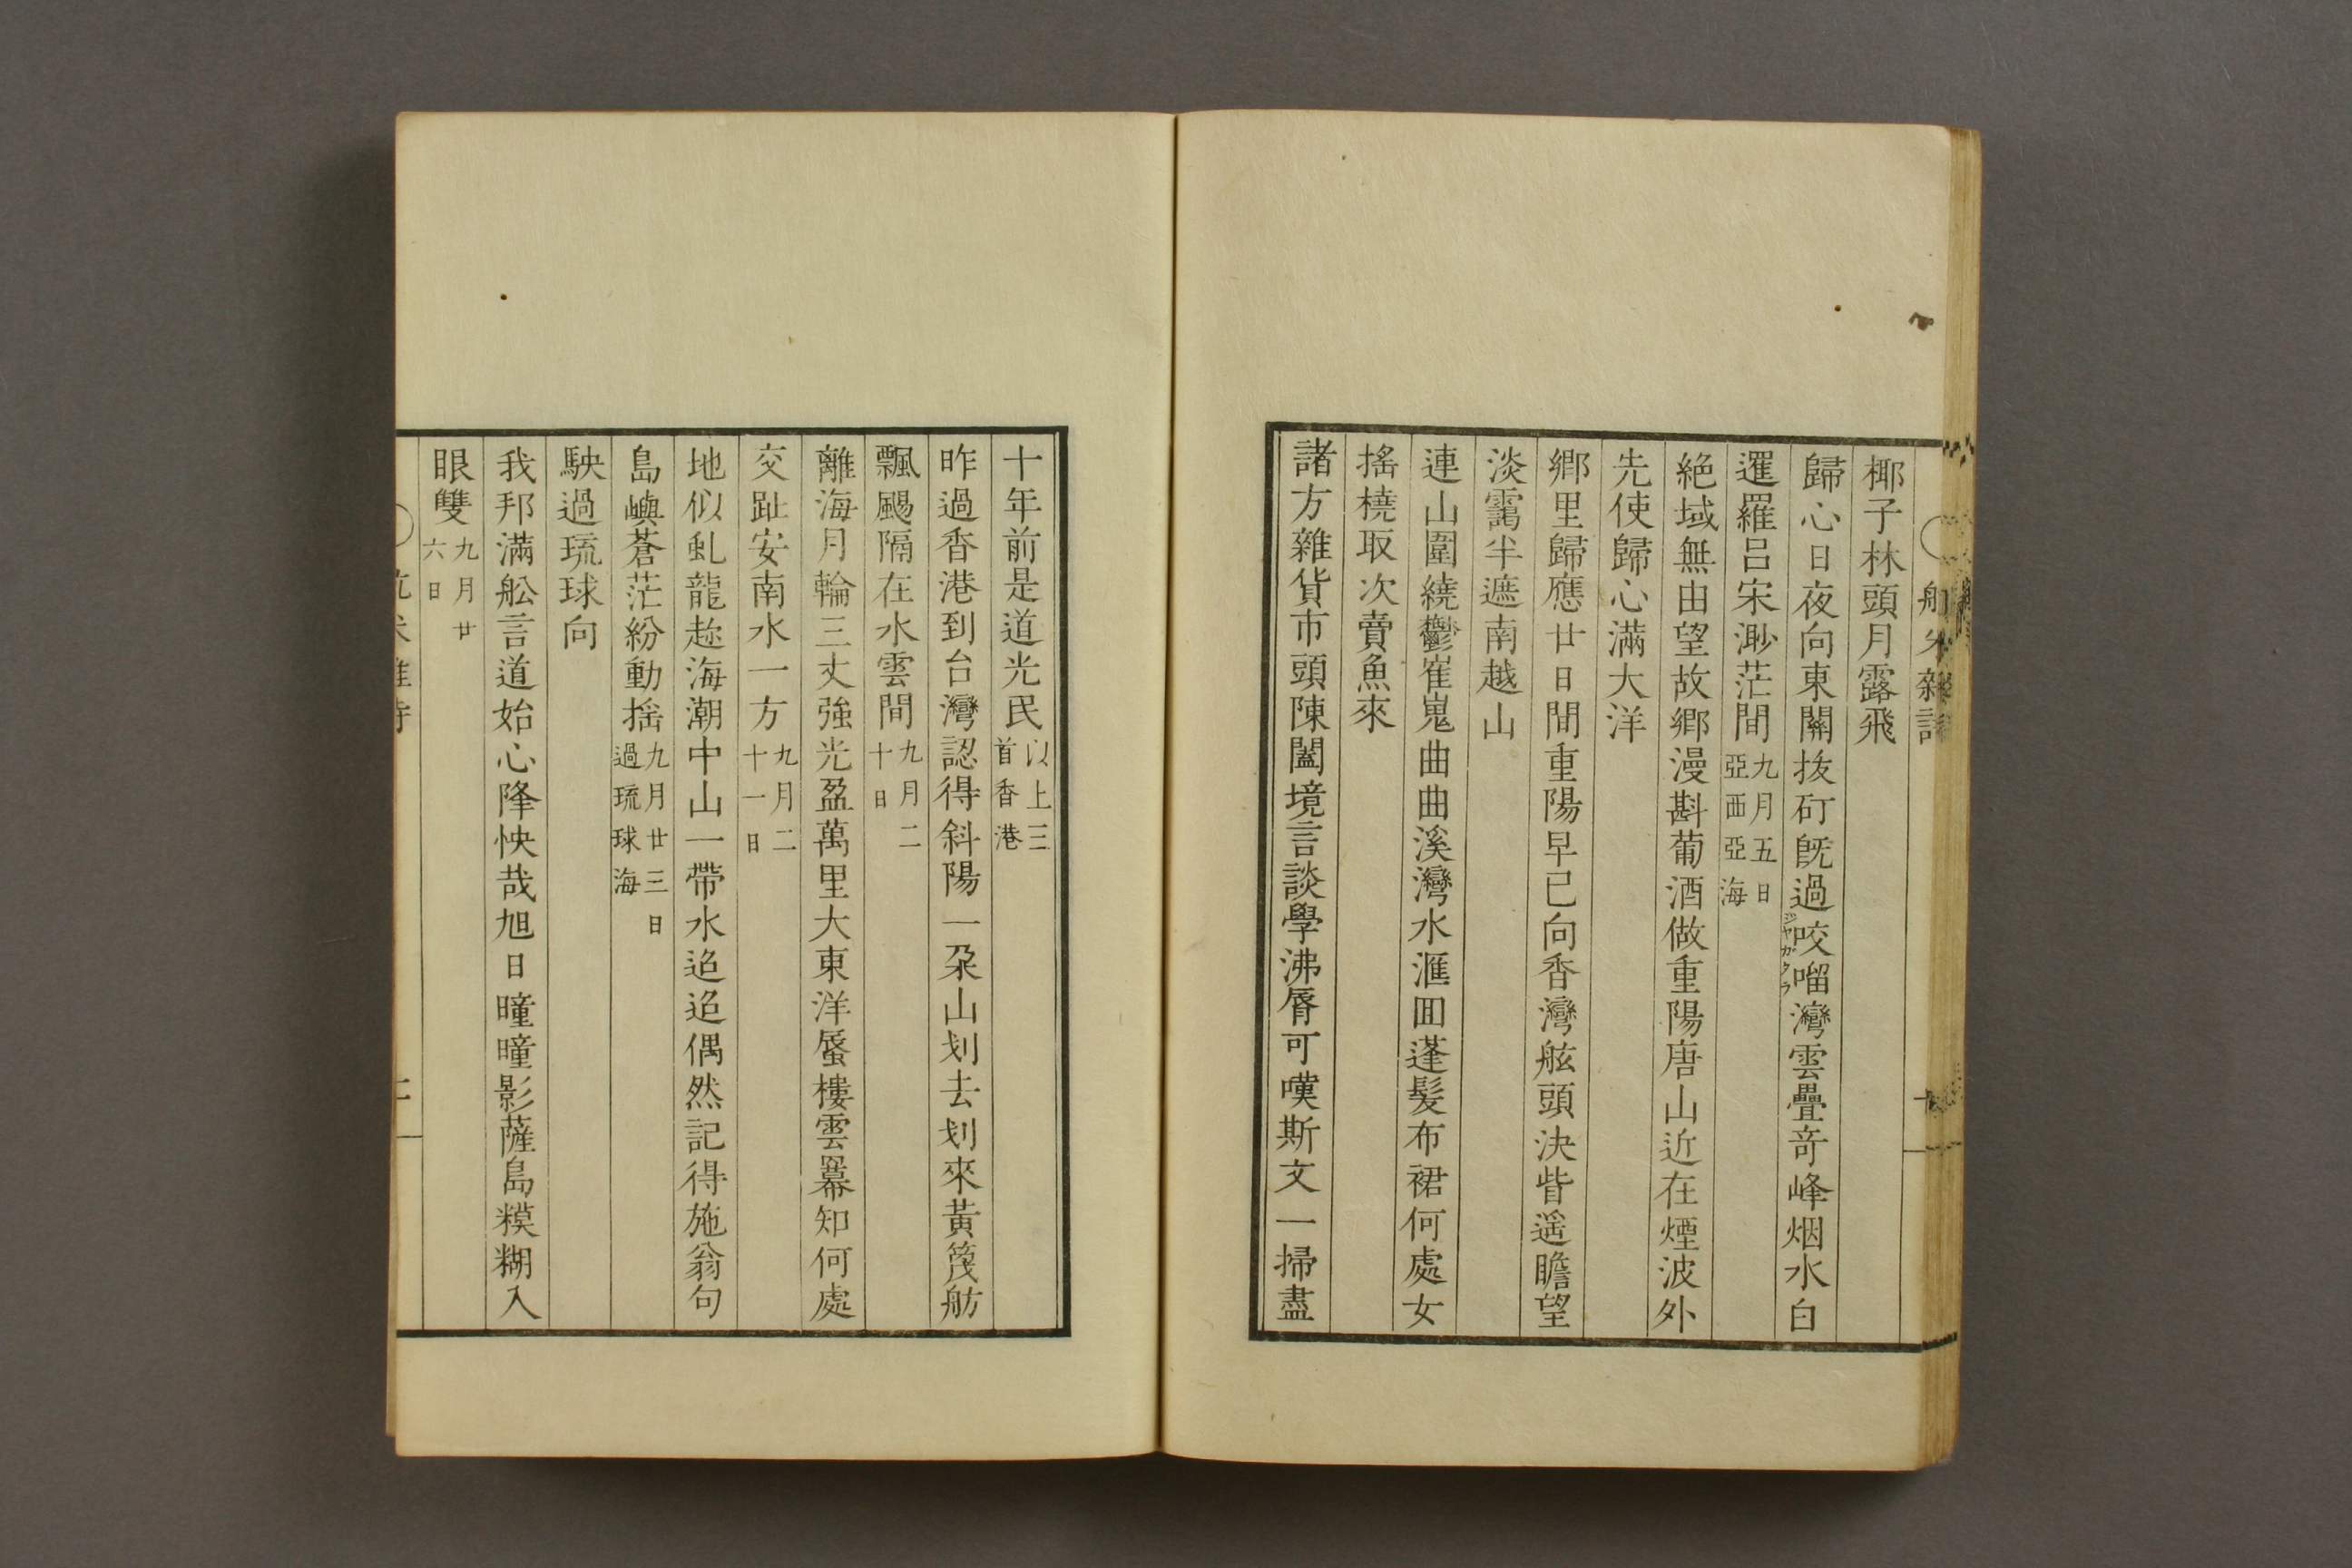 椰子林頭月露飛
歸心日夜向東關拔矴旣過咬𠺕灣雲疊竒峰烟水白
ジヤガタラ
暹羅呂宋渺茫間九月五日亞西亞海
絶域無由望故鄉漫斟葡酒做重陽唐山近在煙波外
先使歸心滿大洋
鄉里歸應廿日間重陽早已向香灣舷頭決眥遥瞻望
淡靄半遮南越山
連山圍繞鬱崔嵬曲曲溪灣水滙囬蓬髮布裙何處女
搖橈取次賣魚來
諸方雜貨市頭陳闔境言談學沸脣可嘆斯文一掃盡
十年前是道光民以上三首香港
昨過香港到台灣認得斜陽一朶山划去划來黃篾舫
飄颺隔在水雲間九月二十日
離海月輪三丈強光盈萬里大東洋蜃樓雲羃知何處
交趾安南水一方九月二十一日
地似虬龍趂海潮中山一帶水迢迢偶然記得施翁句
島嶼蒼茫紛動搖九月廿三日過琉球海
駛過琉球向
我邦滿舩言道始心降快哉旭日曈曈影薩島糢糊入
眼雙九月廿六日